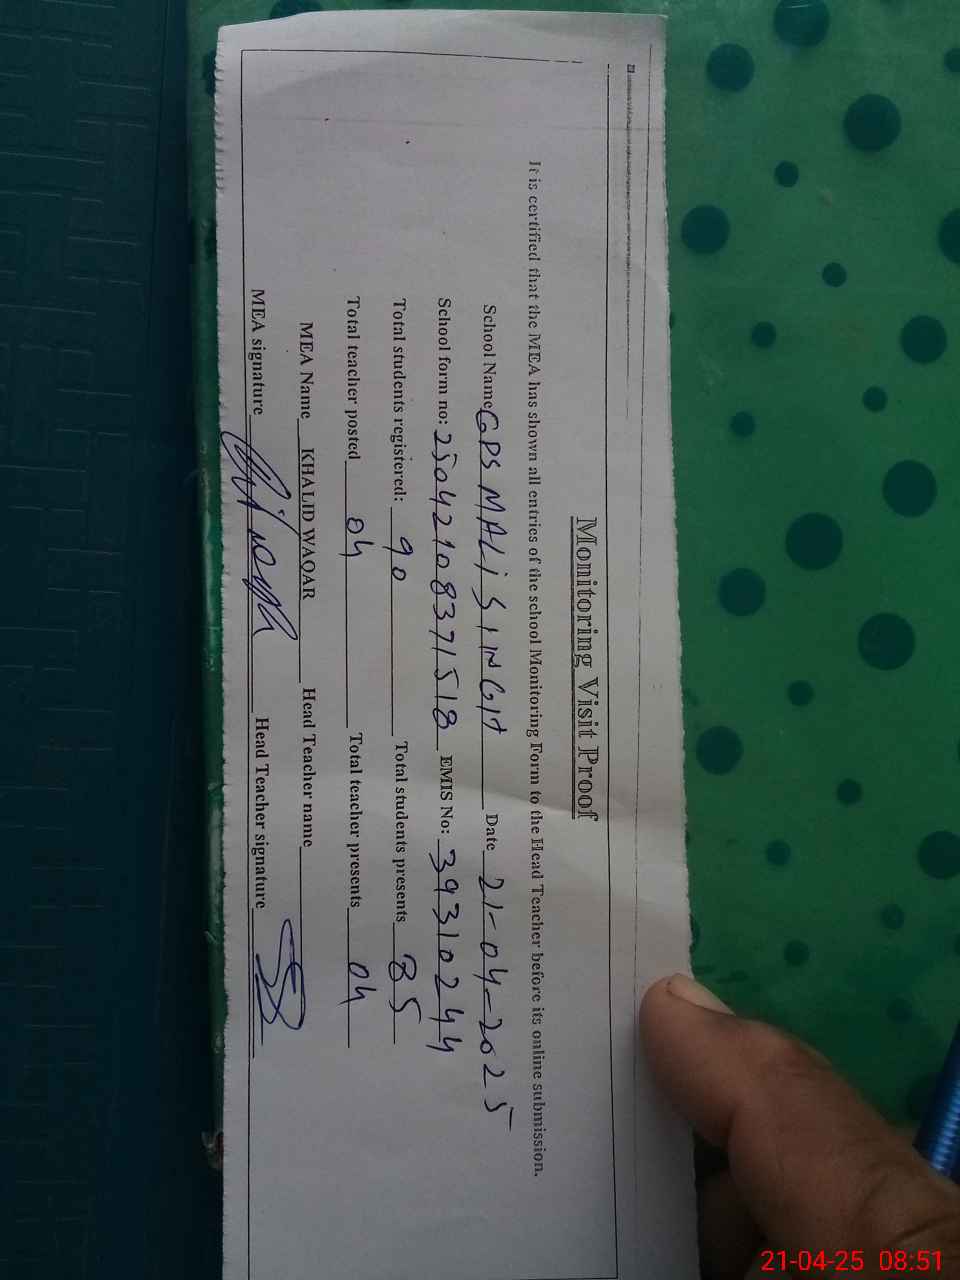 Monitoring Visit Proof
It is certified that the MEA has shown all entries of the school Monitoring Form to the Head Teacher before its online submission.
School Name GPS MALI SINGH Date 21-04-2025
School form no: 25042108371518 EMIS No: 39310244
Total students registered: 90 Total students presents 85
Total teacher posted 04 Total teacher presents 04
MEA Name KHALID WAQAR Head Teacher name
MEA signature Head Teacher signature
21-04-25 08:51